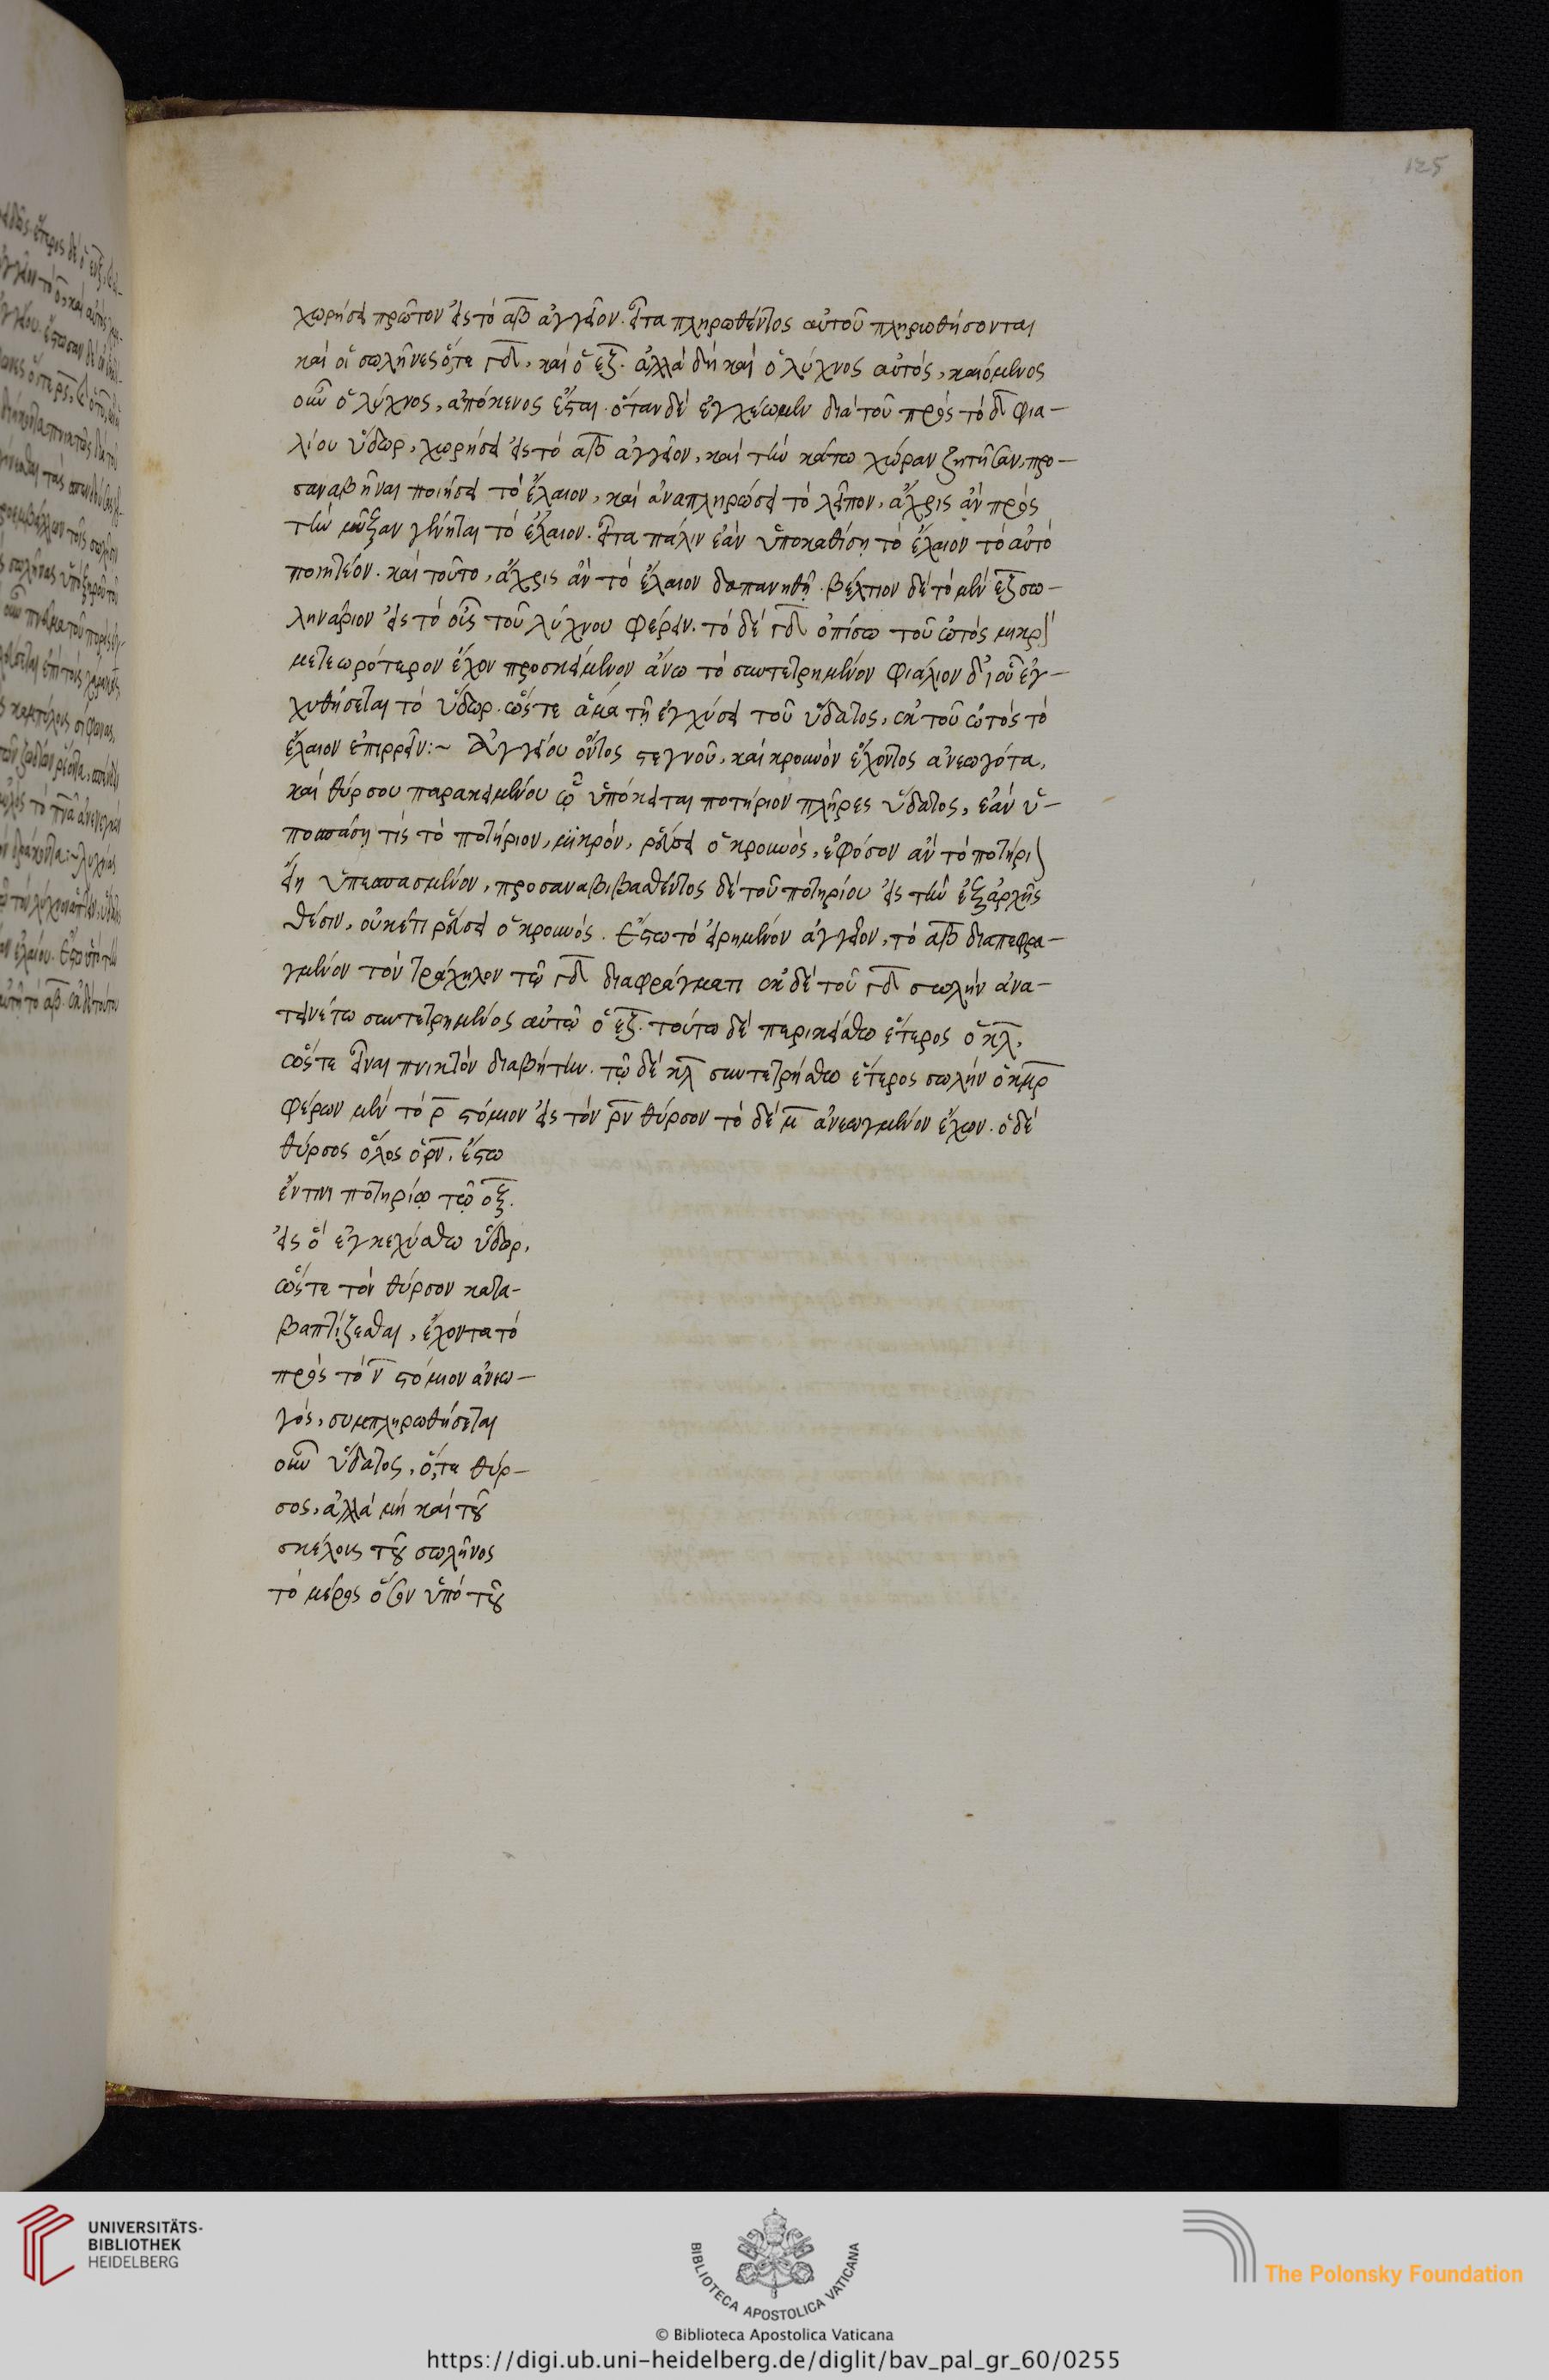 125
χωρήσει πρῶτον εἰς τὸ αβ ἀγγεῖον. εἶτα πληρωθέντος αὐτοῦ πληρωθήσονται
καὶ οἱ σωλῆνες ὅ,τε γδ, καὶ ὁ εζ. ἀλλὰ δὴ καὶ ὁ λύχνος αὐτός, καιόμενος
οὖν ὁ λύχνος, ἀπόκενος ἔσται. ὅταν δὲ ἐγχέωμεν διὰ τοῦ πρὸς τὸ δ φια-
λίου ὕδωρ, χωρήσει εἰς τὸ αβ ἀγγεῖον, καὶ τὴν κάτω χώραν ζητῆσαν, προ-
σαναβῆναι ποιήσει τὸ ἔλαιον, καὶ ἀναπληρώσει τὸ λεῖπον, ἄχρις ἂν πρὸς
τὴν μῦξαν γένηται τὸ ἔλαιον. εἶτα πάλιν ἐὰν ὑποκαθίσῃ τὸ ἔλαιον τὸ αὐτὸ
ποιητέον. καὶ τοῦτο, ἄχρις ἂν τὸ ἔλαιον δαπανηθῇ. βέλτιον δὲ τὸ μὲν εζ σω-
ληνάριον εἰς τὸ οὖς τοῦ λύχνου φέρειν. τὸ δὲ γδ ὀπίσω τοῦ ὠτὸς μικρὸν
μετεωρότερον ἔχον προσκείμενον ἄνω τὸ συντετρημένον φιάλιον δι' οὗ ἐγ-
χυθήσεται τὸ ὕδωρ. ὥστε ἅμα τῇ ἐγχύσει τοῦ ὕδατος, ἐκ τοῦ ὠτὸς τὸ
ἔλαιον ἐπιρρεῖν:~ Ἀγγείου ὄντος στεγνοῦ, καὶ κρουνὸν ἔχοντος ἀνεωγότα,
καὶ θύρσου παρακειμένου ᾧ ὑπόκειται ποτήριον πλῆρες ὕδατος, ἐὰν ὑ-
ποσπάσῃ τίς τὸ ποτήριον, μικρόν, ῥεύσει ὁ κρουνός, ἐφόσον ἂν τὸ ποτήριον
εἴη ὑπεσπασμένον, προσαναβιβασθέντος δὲ τοῦ ποτηρίου εἰς τὴν ἐξαρχῆς
θέσιν, οὐκέτι ῥεύσει ὁ κρουνός. Ἔστω τὸ εἰρημένον ἀγγεῖον, τὸ αβ διαπεφρα-
γμένον τὸν τράχηλον τῷ γδ διαφράγματι ἐκ δὲ τοῦ γδ σωλὴν ἀνα-
τεινέτω συντετρημένος αὐτῷ ὁ εζ. τούτω δὲ περικείσθω ἕτερος ὁ κλ,
ὥστε εἶναι πνικτὸν διαβήτην. τῷ δὲ κλ συντετρήσθω ἕτερος σωλὴν ὁ κμρ
φέρων μὲν τὸ ρ στόμιον εἰς τὸν ρν θύρσον τὸ δὲ μ ἀνεωγμένον ἔχων. ὁ δὲ
θύρσος ὅλος ὁ ρν, ἔστω
ἔν τινι ποτηρίῳ τῷ οξ.
εἰς ὃ ἐγκεχύσθω ὕδωρ,
ὥστε τὸν θύρσον κατα-
βαπτίζεσθαι, ἔχοντα τὸ
πρὸς τὸ ν στόμιον ἀνεω-
γός, συμπληρωθήσεται
οὖν ὕδατος, ὅ,τε θύρ-
σος, ἀλλὰ μὴ καὶ τοῦ
σκέλους τοῦ σωλῆνος
τὸ μέρος ὅσον ὑπὸ τοῦ
UNIVERSITÄTS-
BIBLIOTHEK
HEIDELBERG
BIBLIOTECA APOSTOLICA VATICANA
The Polonsky Foundation
© Biblioteca Apostolica Vaticana
https://digi.ub.uni-heidelberg.de/diglit/bav_pal_gr_60/0255